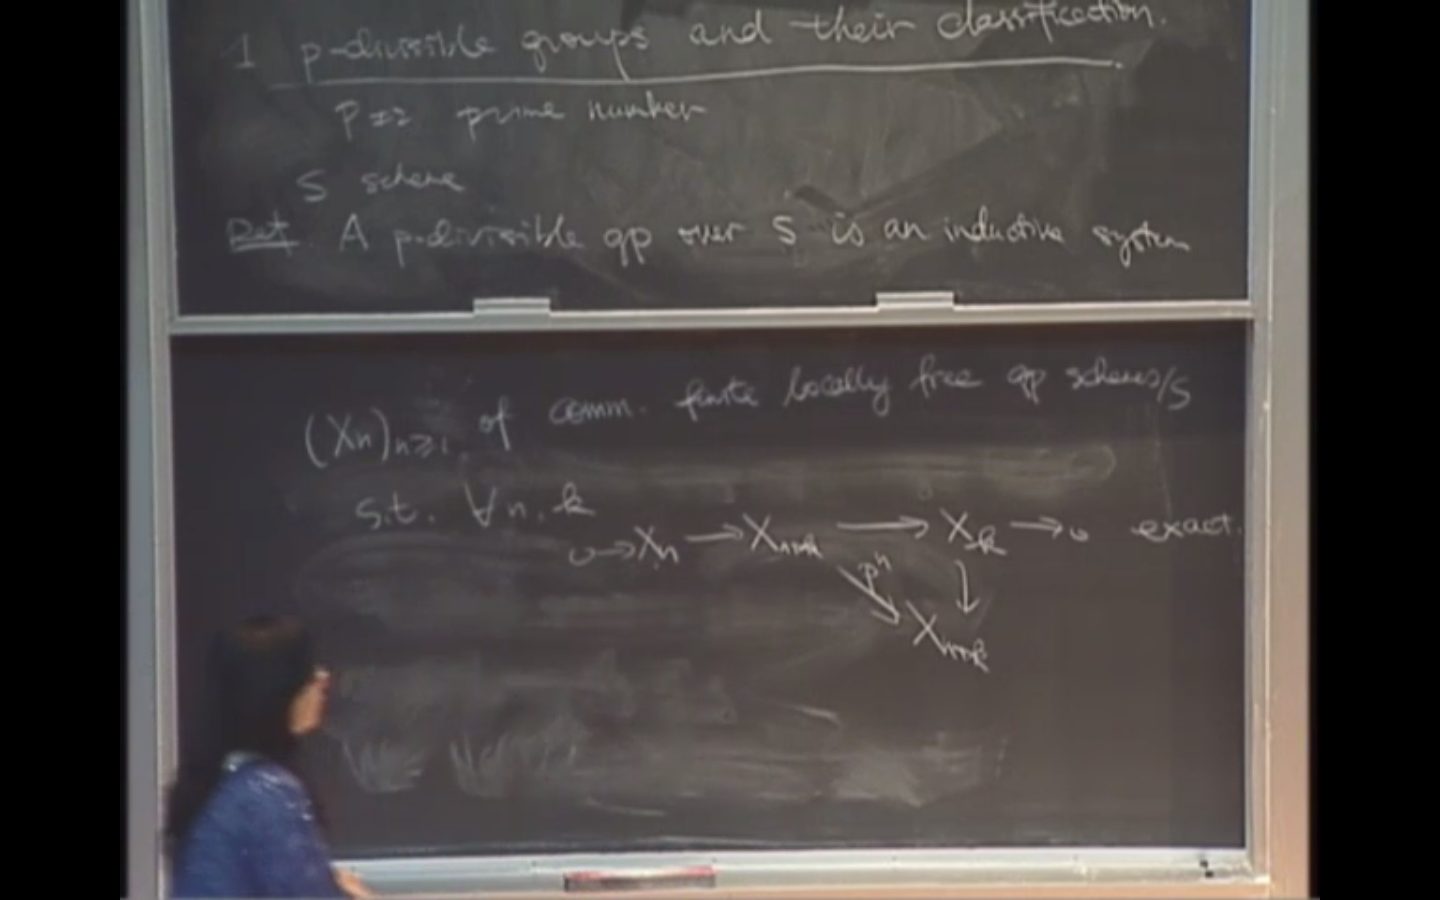 1 p-divisible groups and their classification.
p ≠ 2 prime number
S scheme
Def. A p-divisible gp over S is an inductive system
(Xn)n≥1 of comm. finite locally free gp schemes/S
s.t. ∀n, k
0 → Xn → Xn+k → Xk → 0 exact.
pⁿ ↘ ↓
Xn+k